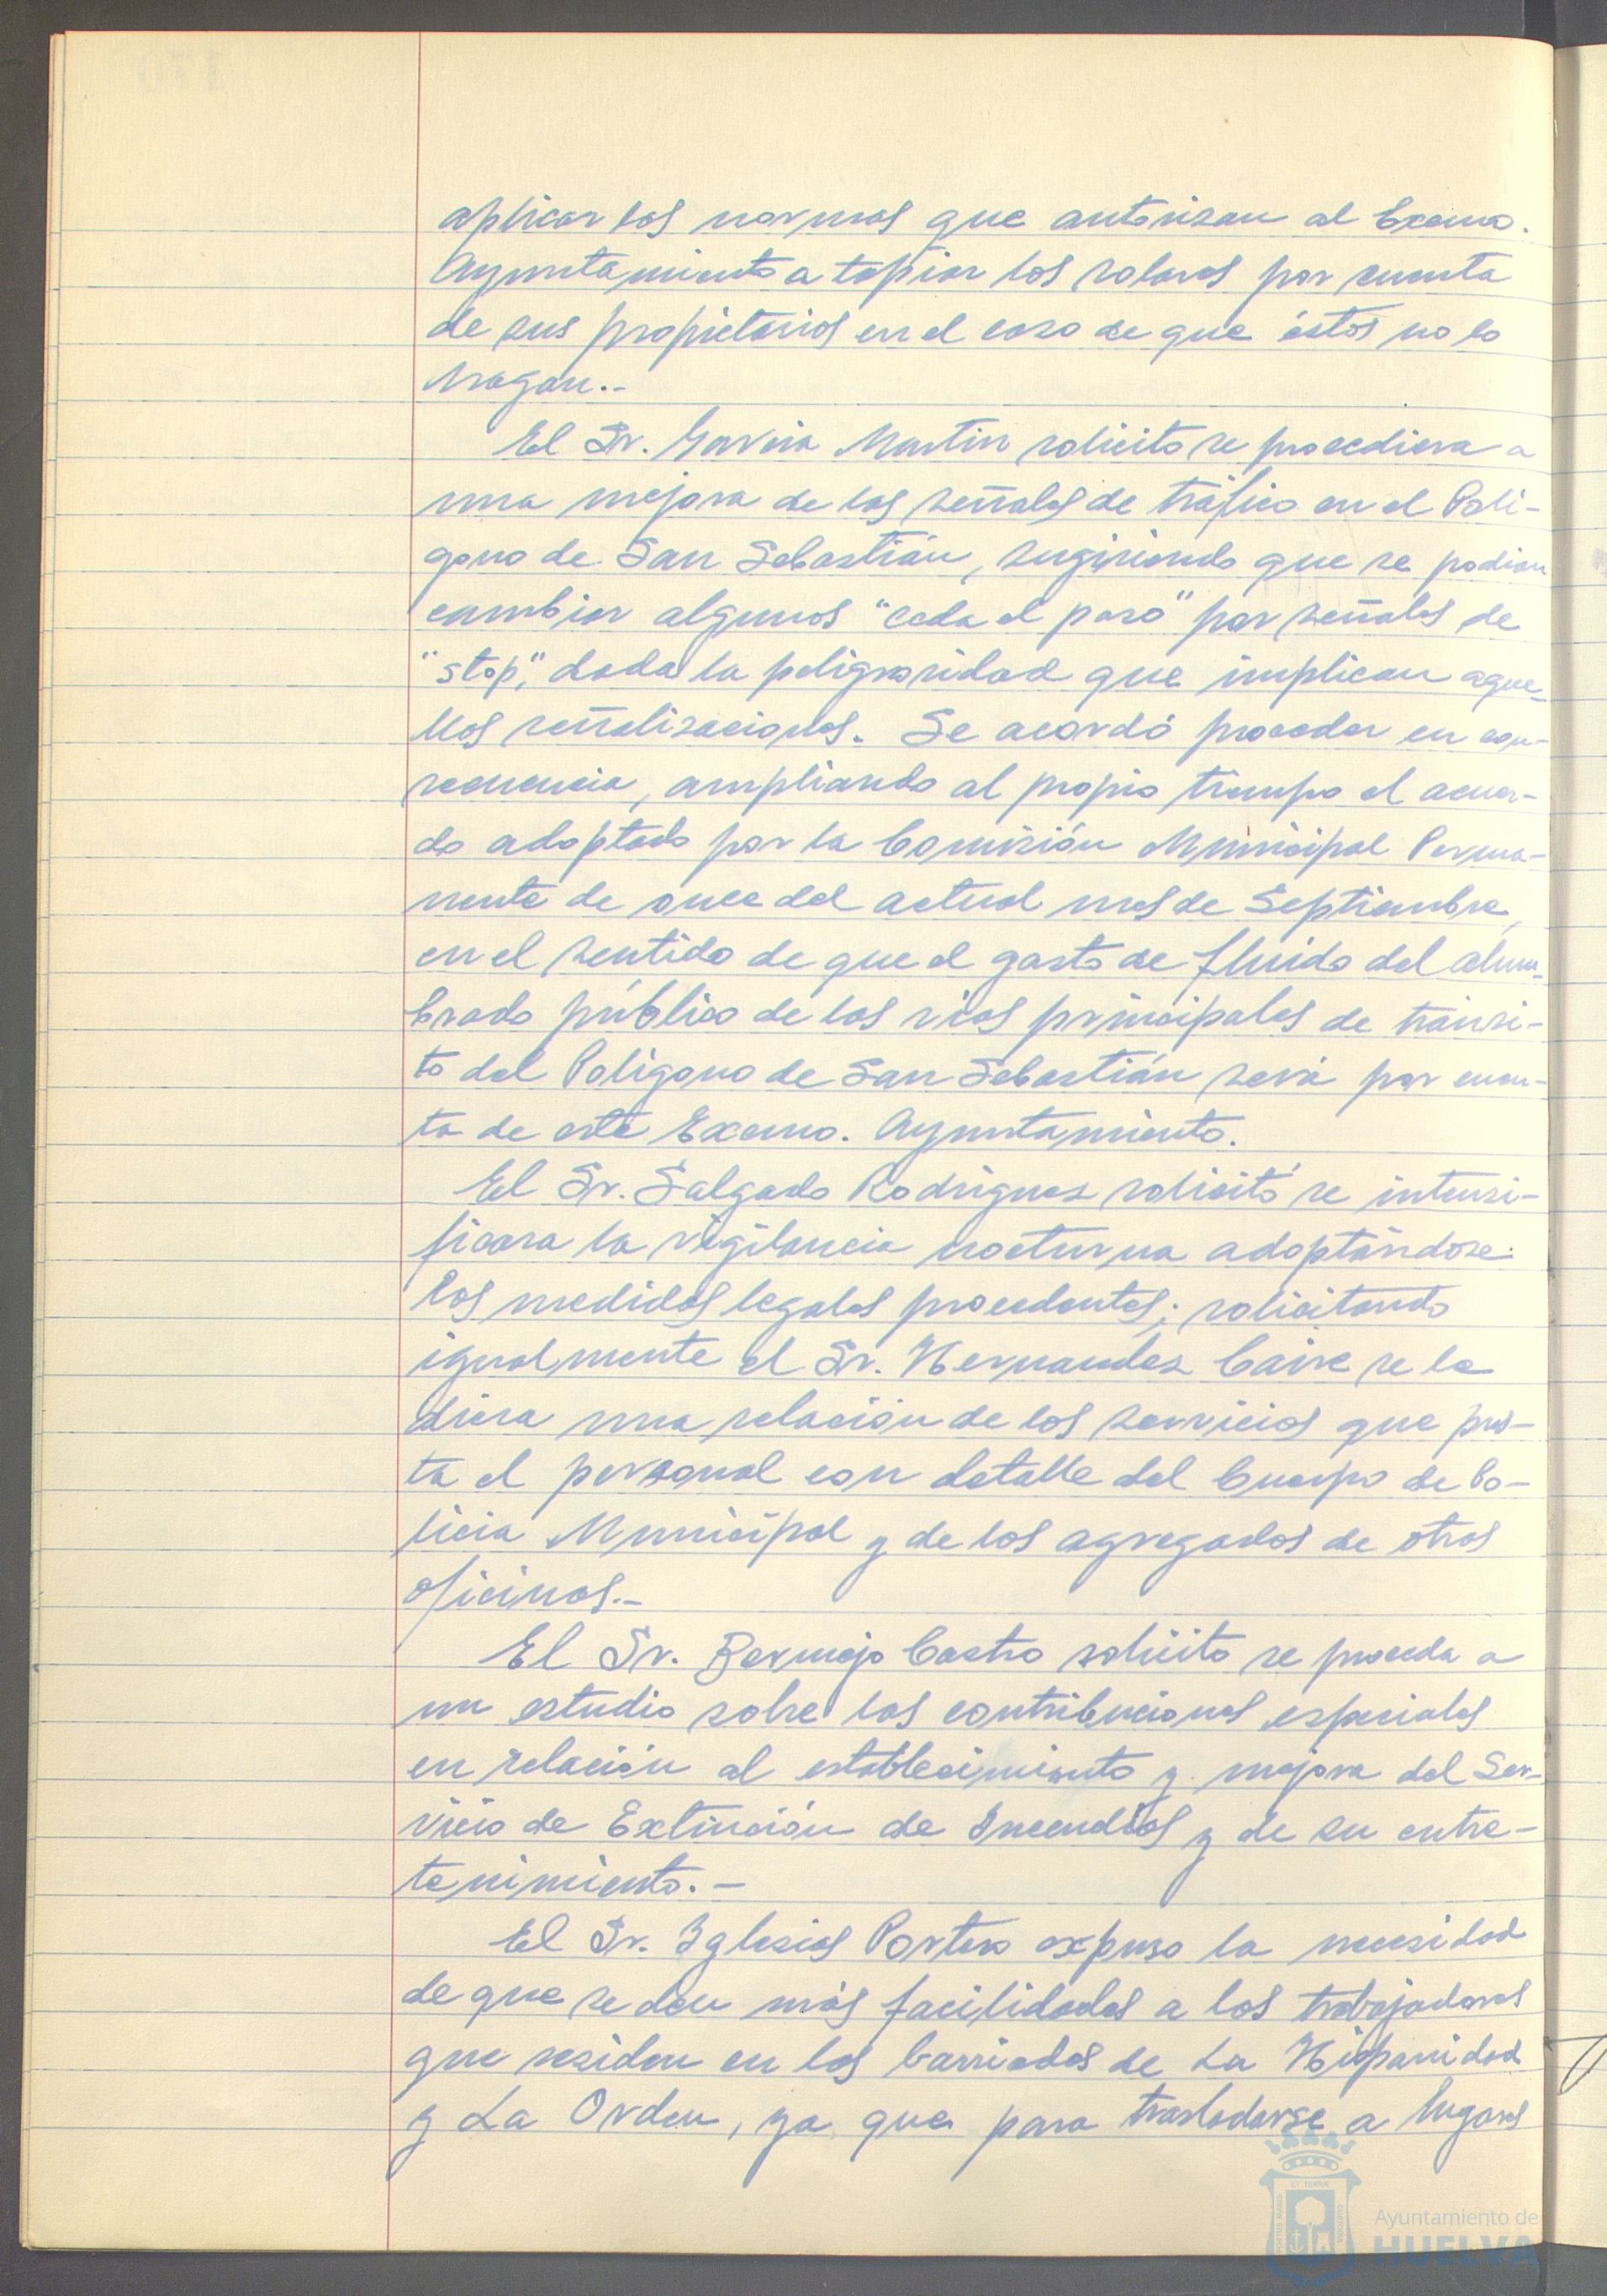 aplicar las normas que autorizan al Excmo.
Ayuntamiento a tapiar los solares por cuenta
de sus propietarios en el caso de que éstos no lo
hagan.-
El Sr. García Martin solicito se procediera a
una mejora de las señales de tráfico en el Polí-
gono de San Sebastián, sugiriendo que se podian
cambiar algunos "ceda el paso" por señales de
"stop", dada la peligrosidad que implican aque-
llas señalizaciones. Se acordó proceder en con-
secuencia, ampliando al propio tiempo el acuer-
do adoptado por la Comisión Municipal Perma-
nente de once del actual mes de Septiembre,
en el sentido de que el gasto de fluido del alum-
brado público de las vias principales de tránsi-
to del Polígono de San Sebastián será por cuen-
ta de este Excmo. Ayuntamiento.
El Sr. Salgado Rodriguez solicitó se intensi-
ficara la vigilancia nocturna adoptándose
las medidas legales procedentes; solicitando
igualmente el Sr. Hernandez Caire se le
diera una relación de los servicios que pres-
ta el personal con detalle del Cuerpo de Po-
licia Municipal y de los agregados de otras
oficinas.-
El Sr. Bermejo Castro solicito se proceda a
un estudio sobre las contribuciones especiales
en relación al establecimiento y mejora del Ser-
vicio de Extinción de Incendios y de su entre-
tenimiento.-
El Sr. Iglesias Portero expuso la necesidad
de que se den más facilidades a los trabajadores
que residen en las barriadas de La Hispanidad
y La Orden, ya que para trasladarse a lugares
Ayuntamiento de
HUELVA